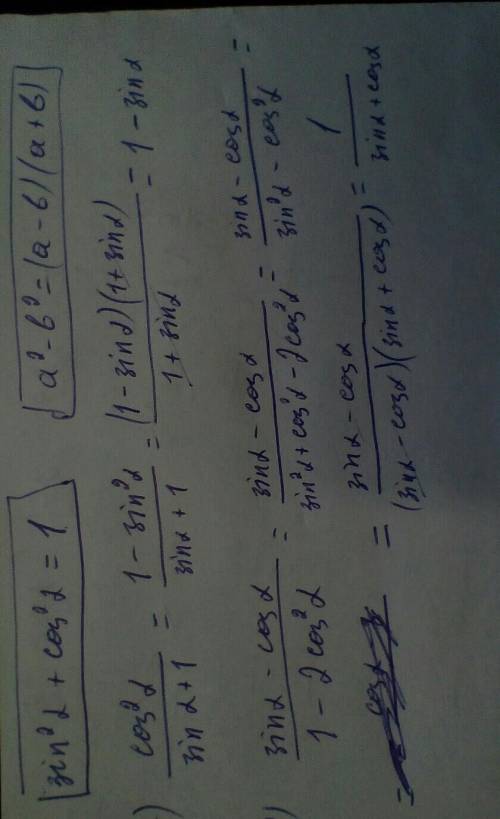 sin²α + cos²α = 1    a² - b² = (a - b)(a + b)
) cos²α / (sin α + 1) = (1 - sin²α) / (sin α + 1) = (1 - sin α)(1 + sin α) / (1 + sin α) = 1 - sin α
) (sin α - cos α) / (1 - 2cos²α) = (sin α - cos α) / (sin²α + cos²α - 2cos²α) = (sin α - cos α) / (sin²α - cos²α) =
= (sin α - cos α) / ((sin α - cos α)(sin α + cos α)) = 1 / (sin α + cos α)